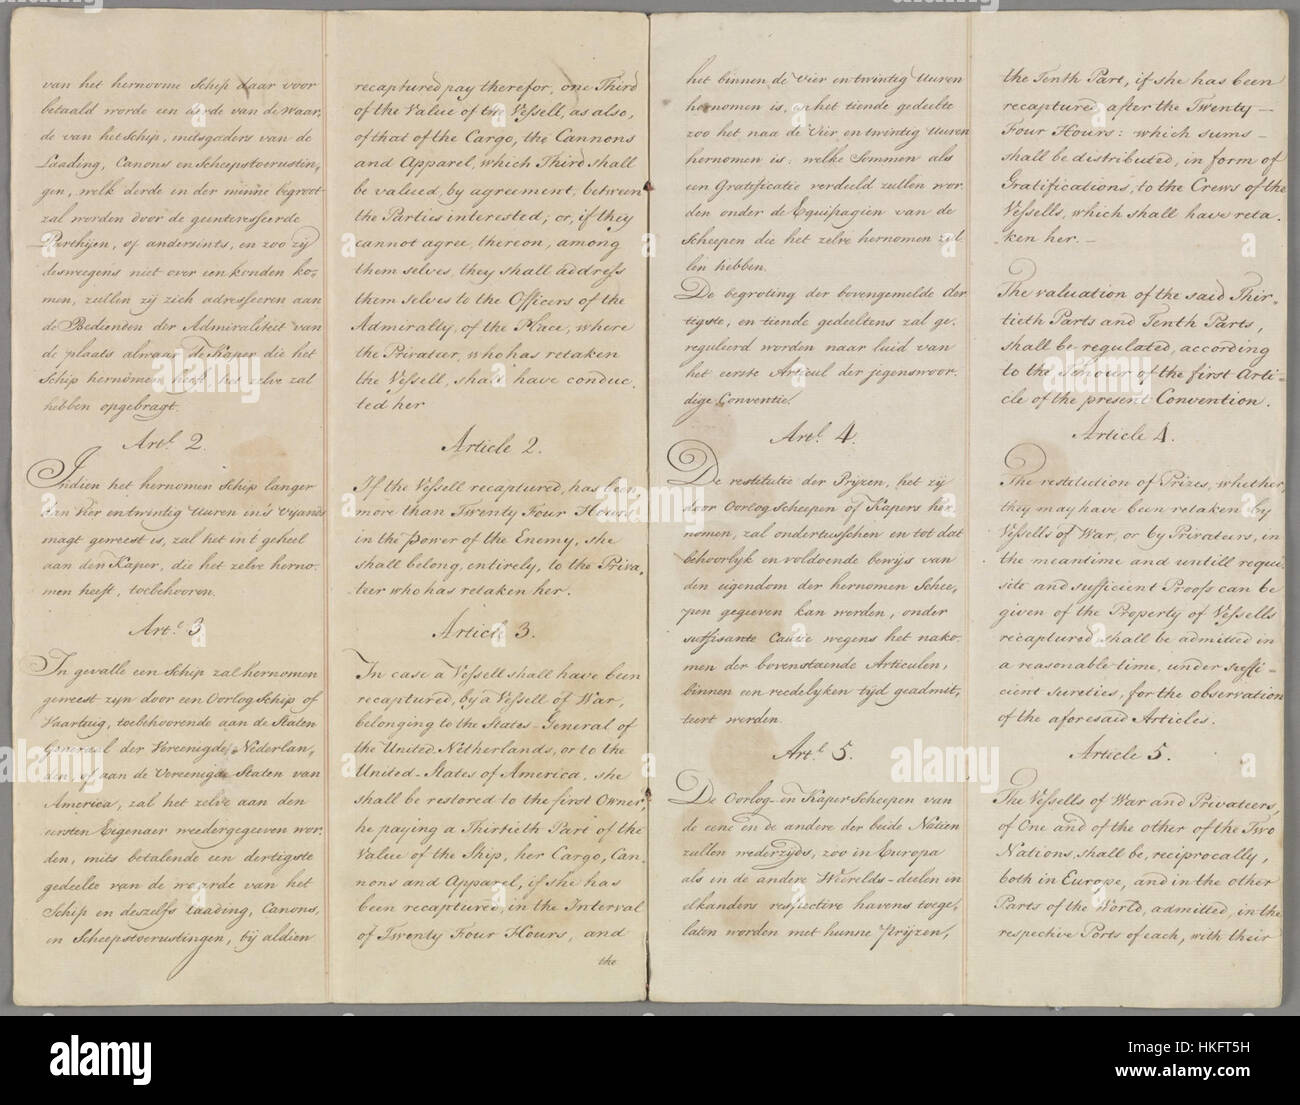 van het hernoome Schip daar voor
betaald worde een derde van de Waar,
de van het Schip, mitsgaders van de
Laading, Canons en Scheepstoerustin,
gen, welk derde in der minne begroot
zal worden door de geinteresseerde
Parthijen, of andersints, en zoo zij
desweegens niet over een konden ko,
men, zullen zij zich adresseeren aan
de Bedienden der Admiraliteit van
de plaats alwaar de Kaper die het
Schip hernomen heeft, het zelve zal
hebben opgebragt.
Artl. 2.
Indien het hernomen Schip langer
dan Vier en twintig Uuren in's Vijands
magt geweest is, zal het in't geheel
aan den Kaper, die het zelve herno,
men heeft, toebehooren.
Artl. 3
In gevalle een Schip zal hernomen
geweest zyn door een Oorlog Schip of
Vaartuig, toebehoorende aan de Staten
Generaal der Vereenigde Nederlan,
den, of aan de Vereenigde Staten van
America, zal het zelve aan den
eersten Eigenaer weedergegeeven wor,
den, mits betalende een dertigste
gedeelte van de waarde van het
Schip en deszelfs Laading, Canons,
en Scheepstoerustingen, bij aldien
recaptured pay therefor, one Third
of the Value of the Vessell, as also,
of that of the Cargo, the Cannons
and Apparel, which Third shall
be valued, by agreement, between
the Parties interested; or, if they
cannot agree, thereon, among
them selves, they shall address
them selves to the Officers of the
Admiralty, of the Place, where
the Privateer, who has retaken
the Vessell, shall have conduc,
ted her
Article 2.
If the Vessell recaptured, has been
more than Twenty Four Hours
in the power of the Enemy, she
shall belong, entirely, to the Priva,
teer who has retaken her.
Article 3.
In case a Vessell shall have been
recaptured, by a Vessell of War,
belonging to the States-General of
the United Netherlands, or to the
United-States of America, she
shall be restored to the first Owner,
he paying a Thirtieth Part of the
Value of the Ship, her Cargo, Can,
nons and Apparel, if she has
been recaptured, in the Interval
of Twenty Four Hours, and
the
het binnen de Vier en twintig Uuren
hernomen is, en het tiende gedeelte
zoo het naa de Vier en twintig Uuren
hernomen is: welke Sommen als
een Gratificatie verdeeld zullen wor,
den onder de Equipagien van de
Scheepen die het zelve hernomen zul
len hebben.
De begroting der bovengemelde der
tigste, en tiende gedeeltens zal ge,
reguleerd worden naar luid van
het eerste Articul der jegenswoor,
dige Conventie.
Artl. 4.
De restitutie der Prijzen, het zij
door Oorlog Scheepen of Kapers her
nomen, zal ondertusschen en tot dat
behoorlyk en voldoende bewijs van
den eigendom der hernomen Schee,
pen gegeeven kan worden, onder
suffisante Cautie wegens het nako,
men der bovenstaende Articulen,
binnen een reedelyken tijd geadmit,
teert werden.
Artl. 5.
De Oorlog- en Kaper Scheepen van
de eene en de andere der beide Natien
zullen wederzyds, zoo in Europa
als in de andere Weerelds-deelen in
elkanders respective havens toege,
laten worden met hunne Prijzen,
the Tenth Part, if she has been
recaptured, after the Twenty -
Four Hours: which sums -
shall be distributed, in form of
Gratifications, to the Crews of the
Vessells, which shall have reta.
ken her. -
The valuation of the said Thir-
tieth Parts and Tenth Parts,
shall be regulated, according
to the Tenour of the first Arti-
cle of the present Convention.
Article 4.
The restitution of Prizes, whether,
they may have been retaken by
Vessells of War, or by Privateers, in
the meantime and untill requi
site and sufficient Proofs can be
given of the Property of Vessells
recaptured, shall be admitted in
a reasonable time, under suffi-
cient sureties, for the observation
of the aforesaid Articles.
Article 5.
The Vessells of War and Privateers,
of One and of the other of the Two
Nations, shall be, reciprocally,
both in Europe, and in the other
Parts of the World, admitted, in the
respective Ports of each, with their
alamy
Image ID: HKFT5H
www.alamy.com